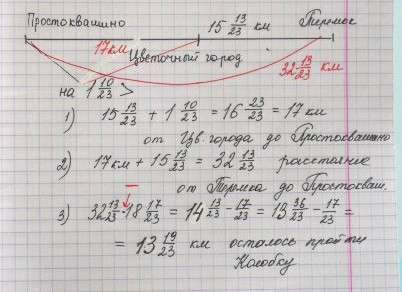 Простоквашино 15 13/23 км Теремок
17 км Цветочный город 32 13/23 км
на 1 10/23 >
1) 15 13/23 + 1 10/23 = 16 23/23 = 17 км
от Цв. города до Простоквашино
2) 17 км + 15 13/23 = 32 13/23 расстояние
от Терема до Простокваш.
3) 32 13/23 - 18 17/23 = 14 13/23 - 17/23 = 13 36/23 - 17/23 =
= 13 19/23 км осталось пройти
Колобку